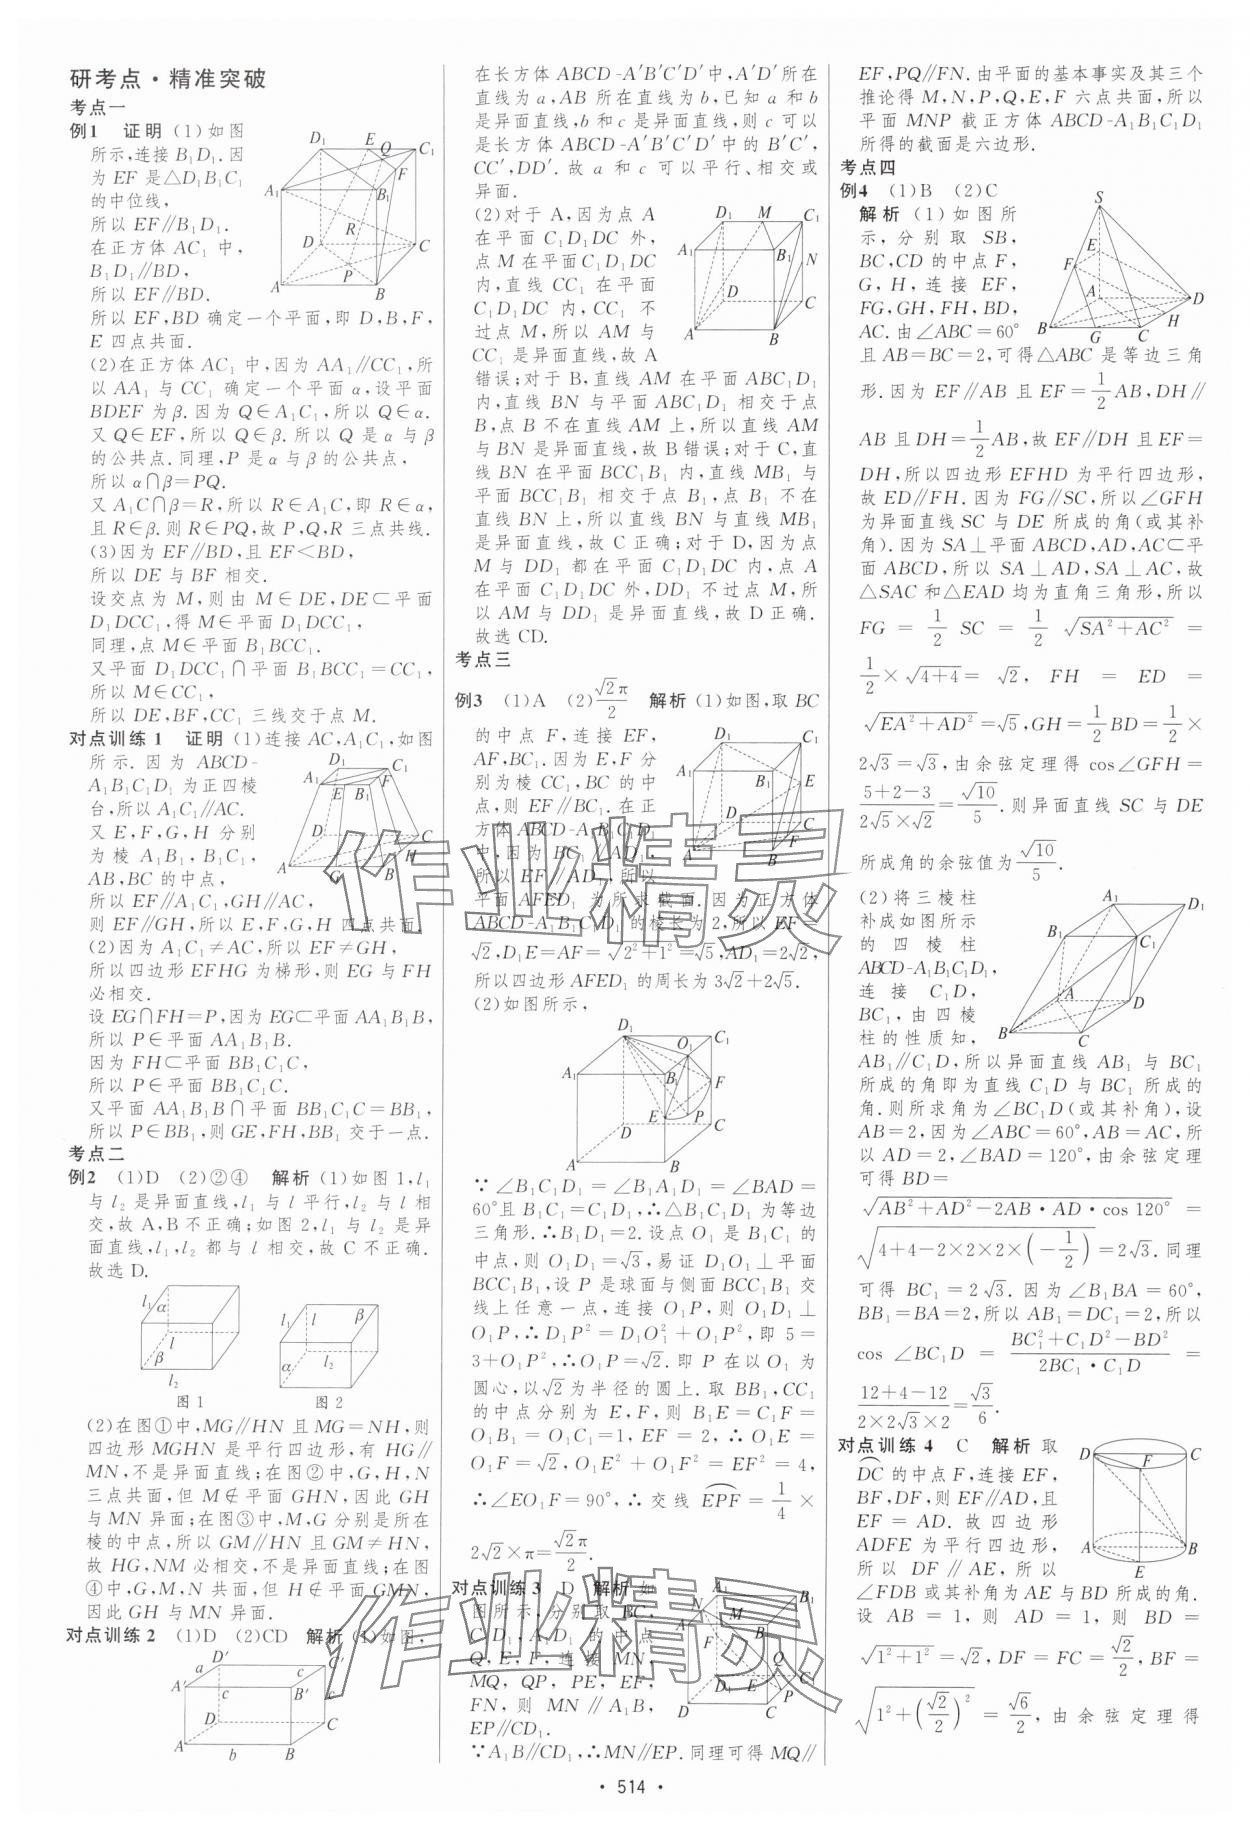 研考点·精准突破
考点一
例1 证明 (1)如图
所示,连接 B₁D₁.因
为 EF 是△D₁B₁C₁
的中位线,
所以 EF∥B₁D₁.
在正方体 AC₁ 中,
B₁D₁∥BD,
所以 EF∥BD.
所以 EF,BD 确定一个平面,即 D,B,F,
E 四点共面.
(2)在正方体 AC₁ 中,因为 AA₁∥CC₁,所
以 AA₁ 与 CC₁ 确定一个平面 α,设平面
BDEF 为 β.因为 Q∈A₁C₁,所以 Q∈α.
又 Q∈EF,所以 Q∈β.所以 Q 是 α 与 β
的公共点.同理,P 是 α 与 β 的公共点,
所以 α∩β=PQ.
又 A₁C∩β=R,所以 R∈A₁C,即 R∈α,
且 R∈β.则 R∈PQ,故 P,Q,R 三点共线.
(3)因为 EF∥BD,且 EF<BD,
所以 DE 与 BF 相交.
设交点为 M,则由 M∈DE,DE⊂平面
D₁DCC₁,得 M∈平面 D₁DCC₁,
同理,点 M∈平面 B₁BCC₁.
又平面 D₁DCC₁∩平面 B₁BCC₁=CC₁,
所以 M∈CC₁,
所以 DE,BF,CC₁ 三线交于点 M.
对点训练 1 证明 (1)连接 AC,A₁C₁,如图
所示.因为 ABCD-
A₁B₁C₁D₁ 为正四棱
台,所以 A₁C₁∥AC.
又 E,F,G,H 分别
为棱 A₁B₁,B₁C₁,
AB,BC 的中点,
所以 EF∥A₁C₁,GH∥AC,
则 EF∥GH,所以 E,F,G,H 四点共面.
(2)因为 A₁C₁≠AC,所以 EF≠GH,
所以四边形 EFHG 为梯形,则 EG 与 FH
必相交.
设 EG∩FH=P,因为 EG⊂平面 AA₁B₁B,
所以 P∈平面 AA₁B₁B.
因为 FH⊂平面 BB₁C₁C,
所以 P∈平面 BB₁C₁C.
又平面 AA₁B₁B∩平面 BB₁C₁C=BB₁,
所以 P∈BB₁,则 GE,FH,BB₁ 交于一点.
考点二
例2 (1)D (2)②④ 解析 (1)如图1,l₁
与 l₂ 是异面直线,l₁ 与 l 平行,l₂ 与 l 相
交,故 A,B 不正确;如图2,l₁ 与 l₂ 是异
面直线,l₁,l₂ 都与 l 相交,故 C 不正确.
故选 D.
图1 图2
(2)在图①中,MG∥HN 且 MG=NH,则
四边形 MGHN 是平行四边形,有 HG∥
MN,不是异面直线;在图②中,G,H,N
三点共面,但 M∉平面 GHN,因此 GH
与 MN 异面;在图③中,M,G 分别是所在
棱的中点,所以 GM∥HN 且 GM≠HN,
故 HG,NM 必相交,不是异面直线;在图
④中,G,M,N 共面,但 H∉平面 GMN,
因此 GH 与 MN 异面.
对点训练 2 (1)D (2)CD 解析 (1)如图,
在长方体 ABCD-A′B′C′D′中,A′D′所在
直线为 a,AB 所在直线为 b,已知 a 和 b
是异面直线,b 和 c 是异面直线,则 c 可以
是长方体 ABCD-A′B′C′D′中的 B′C′,
CC′,DD′.故 a 和 c 可以平行、相交或
异面.
(2)对于 A,因为点 A
在平面 C₁D₁DC 外,
点 M 在平面 C₁D₁DC
内,直线 CC₁ 在平面
C₁D₁DC 内,CC₁ 不
过点 M,所以 AM 与
CC₁ 是异面直线,故 A
错误;对于 B,直线 AM 在平面 ABC₁D₁
内,直线 BN 与平面 ABC₁D₁ 相交于点
B,点 B 不在直线 AM 上,所以直线 AM
与 BN 是异面直线,故 B 错误;对于 C,直
线 BN 在平面 BCC₁B₁ 内,直线 MB₁ 与
平面 BCC₁B₁ 相交于点 B₁,点 B₁ 不在
直线 BN 上,所以直线 BN 与直线 MB₁
是异面直线,故 C 正确;对于 D,因为点
M 与 DD₁ 都在平面 C₁D₁DC 内,点 A
在平面 C₁D₁DC 外,DD₁ 不过点 M,所
以 AM 与 DD₁ 是异面直线,故 D 正确.
故选 CD.
考点三
例3 (1)A (2)√2π/2 解析 (1)如图,取 BC
的中点 F,连接 EF,
AF,BC₁.因为 E,F 分
别为棱 CC₁,BC 的中
点,则 EF∥BC₁.在正
方体 ABCD-A₁B₁C₁D₁
中,因为 BC₁∥AD₁,
所以 EF∥AD₁,所以
平面 AFED₁ 为所求截面.因为正方体
ABCD-A₁B₁C₁D₁ 的棱长为2,所以 EF=
√2,D₁E=AF=√(2²+1²)=√5,AD₁=2√2,
所以四边形 AFED₁ 的周长为 3√2+2√5.
(2)如图所示,
∵∠B₁C₁D₁=∠B₁A₁D₁=∠BAD=
60°且 B₁C₁=C₁D₁,∴△B₁C₁D₁ 为等边
三角形.∴B₁D₁=2.设点 O₁ 是 B₁C₁ 的
中点,则 O₁D₁=√3,易证 D₁O₁⊥平面
BCC₁B₁,设 P 是球面与侧面 BCC₁B₁ 交
线上任意一点,连接 O₁P,则 O₁D₁⊥
O₁P,∴D₁P²=D₁O₁²+O₁P²,即 5=
3+O₁P²,∴O₁P=√2.即 P 在以 O₁ 为
圆心,以√2为半径的圆上.取 BB₁,CC₁
的中点分别为 E,F,则 B₁E=C₁F=
O₁B₁=O₁C₁=1,EF=2,∴O₁E=
O₁F=√2,O₁E²+O₁F²=EF²=4,
∴∠EO₁F=90°,∴交线 EPF⌢=1/4×
2√2×π=√2π/2.
对点训练 3 D 解析 如
图所示,分别取 BC,
C₁D₁,A₁D₁ 的中点
Q,E,F,连接 MN,
MQ,QP,PE,EF,
FN,则 MN∥A₁B,
EP∥CD₁.
∵A₁B∥CD₁,∴MN∥EP.同理可得 MQ∥
EF,PQ∥FN.由平面的基本事实及其三个
推论得 M,N,P,Q,E,F 六点共面,所以
平面 MNP 截正方体 ABCD-A₁B₁C₁D₁
所得的截面是六边形.
考点四
例4 (1)B (2)C
解析 (1)如图所
示,分别取 SB,
BC,CD 的中点 F,
G,H,连接 EF,
FG,GH,FH,BD,
AC.由∠ABC=60°
且 AB=BC=2,可得△ABC 是等边三角
形.因为 EF∥AB 且 EF=1/2AB,DH∥
AB 且 DH=1/2AB,故 EF∥DH 且 EF=
DH,所以四边形 EFHD 为平行四边形,
故 ED∥FH.因为 FG∥SC,所以∠GFH
为异面直线 SC 与 DE 所成的角(或其补
角).因为 SA⊥平面 ABCD,AD,AC⊂平
面 ABCD,所以 SA⊥AD,SA⊥AC,故
△SAC 和△EAD 均为直角三角形,所以
FG=1/2SC=1/2√(SA²+AC²)=
1/2×√(4+4)=√2,FH=ED=
√(EA²+AD²)=√5,GH=1/2BD=1/2×
2√3=√3,由余弦定理得 cos∠GFH=
(5+2-3)/(2√5×√2)=√10/5.则异面直线 SC 与 DE
所成角的余弦值为√10/5.
(2)将三棱柱
补成如图所示
的四棱柱
ABCD-A₁B₁C₁D₁,
连接 C₁D,
BC₁,由四棱
柱的性质知,
AB₁∥C₁D,所以异面直线 AB₁ 与 BC₁
所成的角即为直线 C₁D 与 BC₁ 所成的
角.则所求角为∠BC₁D(或其补角),设
AB=2,因为∠ABC=60°,AB=AC,所
以 AD=2,∠BAD=120°,由余弦定理
可得 BD=
√(AB²+AD²-2AB·AD·cos 120°)=
√(4+4-2×2×2×(-1/2))=2√3.同理
可得 BC₁=2√3.因为∠B₁BA=60°,
BB₁=BA=2,所以 AB₁=DC₁=2,所以
cos∠BC₁D=(BC₁²+C₁D²-BD²)/(2BC₁·C₁D)=
(12+4-12)/(2×2√3×2)=√3/6.
对点训练 4 C 解析 取
DC⌢的中点 F,连接 EF,
BF,DF,则 EF∥AD,且
EF=AD.故四边形
ADFE 为平行四边形,
所以 DF∥AE,所以
∠FDB 或其补角为 AE 与 BD 所成的角.
设 AB=1,则 AD=1,则 BD=
√(1²+1²)=√2,DF=FC=√2/2,BF=
√(1²+(√2/2)²)=√6/2,由余弦定理得
·514·
作业精灵
作业精灵